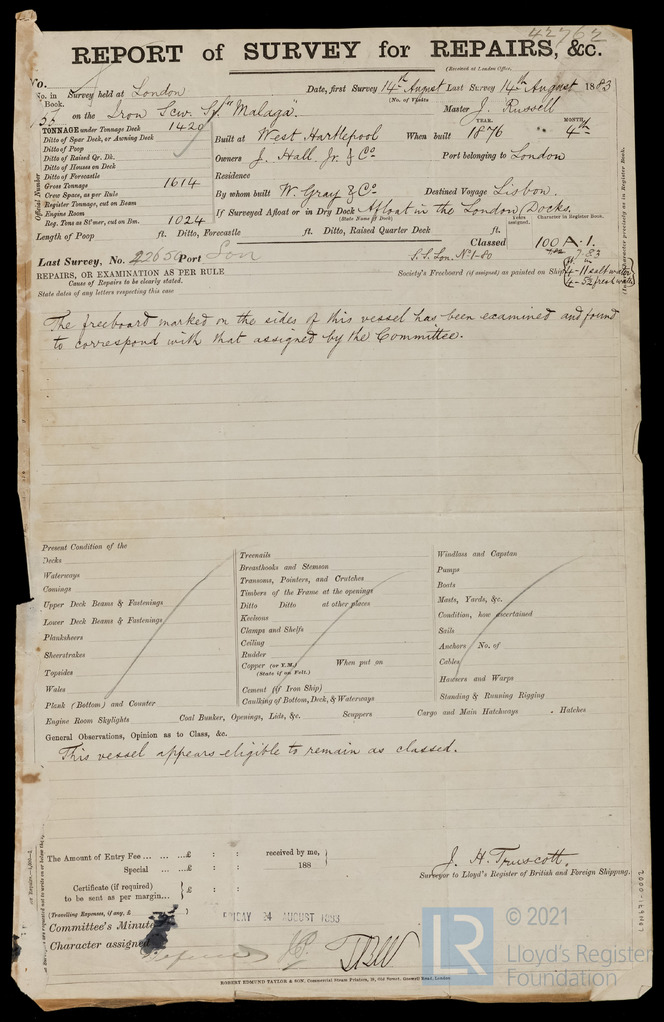 42762
REPORT of SURVEY for REPAIRS, &c.
(Received at London Office,
No.
No. in Book. Survey held at London Date, first Survey 14th August Last Survey 14th August 1883
(No. of Visits
35 on the Iron Scw. Sr. "Malaga". Master J. Russell
TONNAGE under Tonnage Deck 1429
Ditto of Spar Deck, or Awning Deck
Ditto of Poop
Ditto of Raised Qr. Dk.
Ditto of Houses on Deck
Ditto of Forecastle
Gross Tonnage 1614
Crew Space, as per Rule
Register Tonnage, cut on Beam
Engine Room
Reg. Tons as St'mer, cut on Bm. 1024
Official Number
YEAR. MONTH.
Built at West Hartlepool When built 1876 4th
Owners J. Hall Jr. & Co Port belonging to London
Residence
By whom built W. Gray & Co. Destined Voyage Lisbon.
If Surveyed Afloat or in Dry Dock Afloat in the London Docks.
(State Name of Dock) Years assigned. Character in Register Book.
Length of Poop ft. Ditto, Forecastle ft. Ditto, Raised Quarter Deck ft.
Classed 100 A. 1.
7.83
Last Survey, No. 22650 Port Lon S.S. Lon. No 1-80
REPAIRS, OR EXAMINATION AS PER RULE Society's Freeboard (if assigned) as painted on Ship
ft. in
4-11 salt water
4-5½ fresh water
Cause of Repairs to be clearly stated.
State dates of any letters respecting this case
The freeboard marked on the sides of this vessel has been examined and found
to correspond with that assigned by the Committee.
Present Condition of the
Decks
Waterways
Comings
Upper Deck Beams & Fastenings
Lower Deck Beams & Fastenings
Planksheers
Sheerstrakes
Topsides
Wales
Plank (Bottom) and Counter
Treenails
Breasthooks and Stemson
Transoms, Pointers, and Crutches
Timbers of the Frame at the openings
Ditto Ditto at other places
Keelsons
Clamps and Shelfs
Ceiling
Rudder
Copper (or Y.M.) When put on
(State if on Felt.)
Cement (if Iron Ship)
Caulking of Bottom, Deck, & Waterways
Windlass and Capstan
Pumps
Boats
Masts, Yards, &c.
Condition, how ascertained
Sails
Anchors No. of
Cables
Hawsers and Warps
Standing & Running Rigging
Engine Room Skylights Coal Bunker, Openings, Lids, &c. Scuppers Cargo and Main Hatchways Hatches
General Observations, Opinion as to Class, &c.
This vessel appears eligible to remain as classed.
The Amount of Entry Fee ... ... ...£ : : received by me,
Special ... ...£ : : 188
Certificate (if required)
to be sent as per margin... £ : :
(Travelling Expenses, if any, £
J. H. Truscott.
Surveyor to Lloyd's Register of British and Foreign Shipping.
Committee's Minute FRIDAY 24 AUGUST 1883
Character assigned
ROBERT EDMUND TAYLOR & SON, Commercial Steam Printers, 19, Old Street, Goswell Road, London
© 2021
LR
Lloyd's Register
Foundation